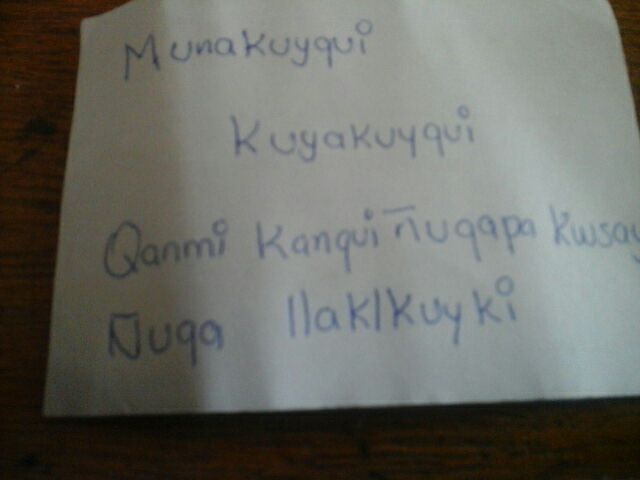 Munakuyqui
Kuyakuyqui
Qanmi Kanqui ñuqapa Kwsay
Ñuqa llaklkuyki